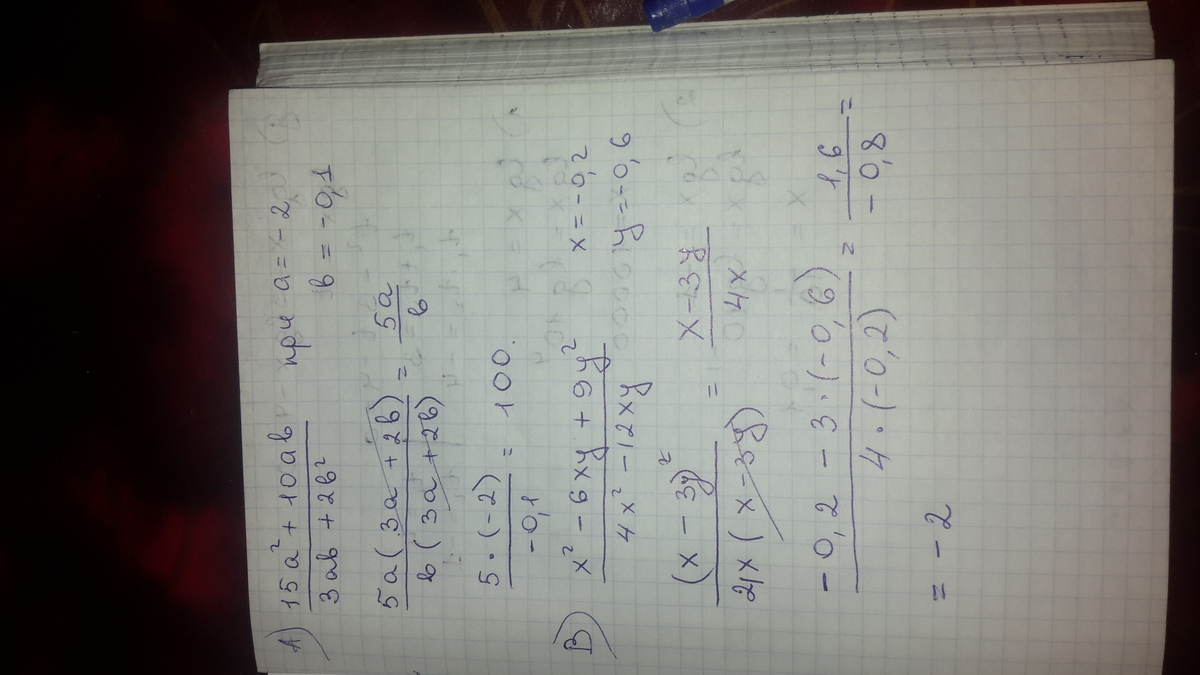 А) (15a² + 10ab)/(3ab + 2b²) при a = -2
b = -0,1
(5a(3a + 2b))/(b(3a + 2b)) = 5a/b
(5·(-2))/(-0,1) = 100.
В) (x² - 6xy + 9y²)/(4x² - 12xy) x = -0,2
y = -0,6
(x - 3y)²/(4x(x - 3y)) = (x - 3y)/(4x)
(-0,2 - 3·(-0,6))/(4·(-0,2)) = 1,6/(-0,8) =
= -2